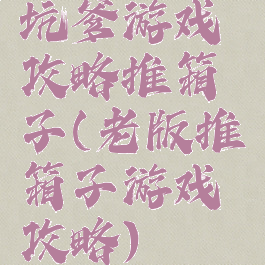 坑爹游戏
攻略推箱
子(老版推
箱子游戏
攻略)